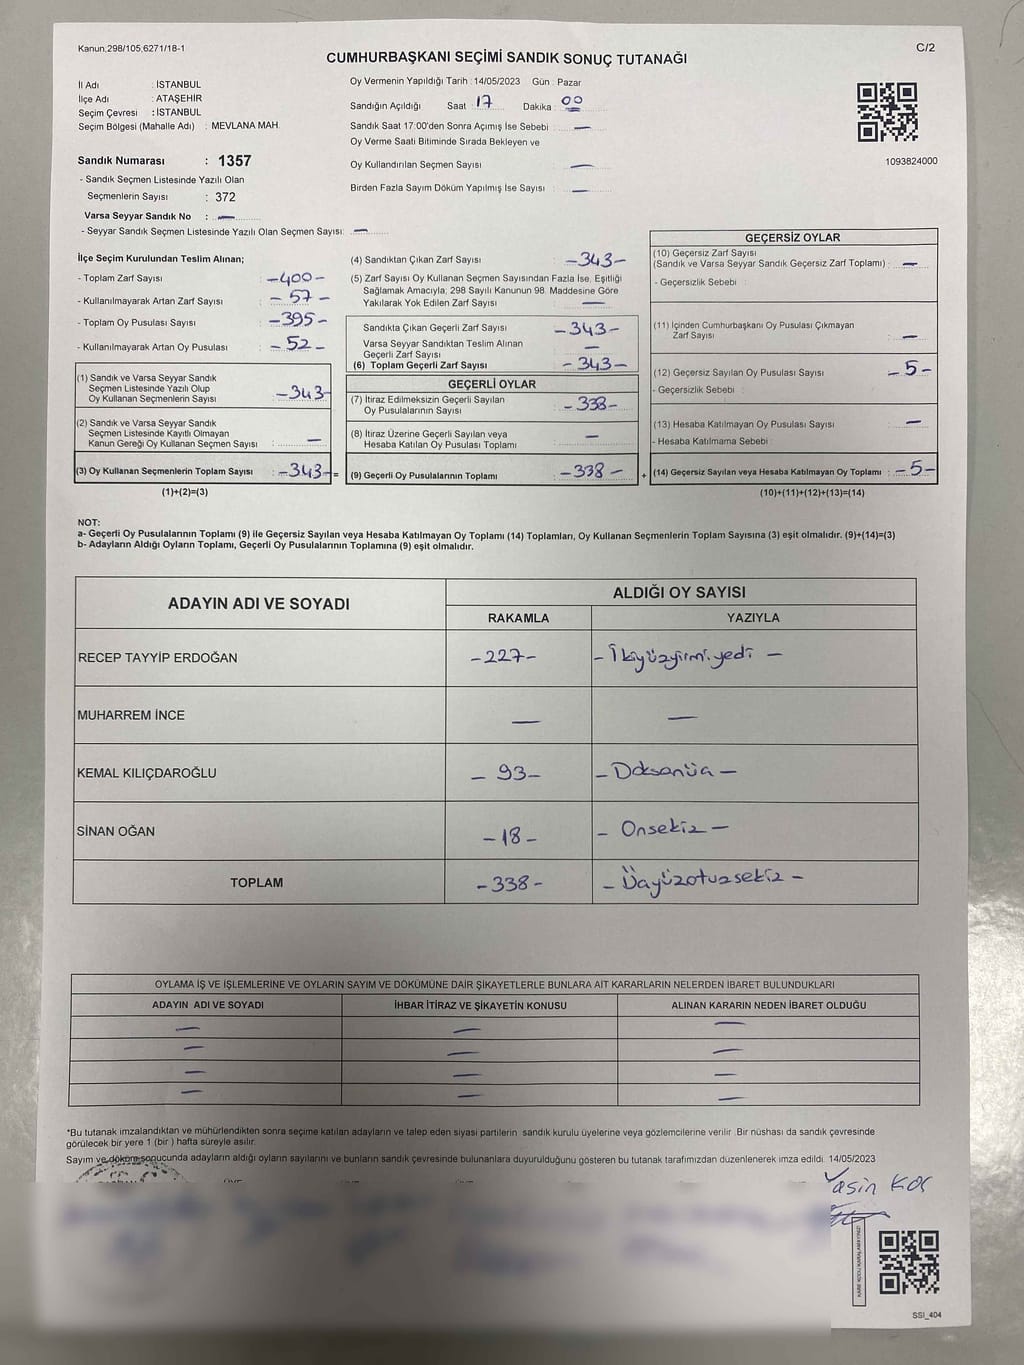 Kanun,298/105,6271/18-1
C/2
CUMHURBAŞKANI SEÇİMİ SANDIK SONUÇ TUTANAĞI
İl Adı : İSTANBUL
İlçe Adı : ATAŞEHİR
Seçim Çevresi : İSTANBUL
Seçim Bölgesi (Mahalle Adı) : MEVLANA MAH.
Oy Vermenin Yapıldığı Tarih : 14/05/2023 Gün : Pazar
Sandığın Açıldığı Saat 17 Dakika : 00
Sandık Saat 17:00'den Sonra Açımış İse Sebebi : —
Oy Verme Saati Bitiminde Sırada Bekleyen ve
Oy Kullandırılan Seçmen Sayısı —
Birden Fazla Sayım Döküm Yapılmış İse Sayısı : —
1093824000
Sandık Numarası : 1357
- Sandık Seçmen Listesinde Yazılı Olan
Seçmenlerin Sayısı : 372
Varsa Seyyar Sandık No : —
- Seyyar Sandık Seçmen Listesinde Yazılı Olan Seçmen Sayısı: —
İlçe Seçim Kurulundan Teslim Alınan;
- Toplam Zarf Sayısı : -400-
- Kullanılmayarak Artan Zarf Sayısı : - 57 -
- Toplam Oy Pusulası Sayısı : -395-
- Kullanılmayarak Artan Oy Pusulası : - 52 -
(1) Sandık ve Varsa Seyyar Sandık
Seçmen Listesinde Yazılı Olup
Oy Kullanan Seçmenlerin Sayısı : -343-
(2) Sandık ve Varsa Seyyar Sandık
Seçmen Listesinde Kayıtlı Olmayan
Kanun Gereği Oy Kullanan Seçmen Sayısı : —
(3) Oy Kullanan Seçmenlerin Toplam Sayısı : -343- =
(1)+(2)=(3)
(4) Sandıktan Çıkan Zarf Sayısı : -343-
(5) Zarf Sayısı Oy Kullanan Seçmen Sayısından Fazla İse, Eşitliği
Sağlamak Amacıyla; 298 Sayılı Kanunun 98. Maddesine Göre
Yakılarak Yok Edilen Zarf Sayısı : —
Sandıkta Çıkan Geçerli Zarf Sayısı -343-
Varsa Seyyar Sandıktan Teslim Alınan
Geçerli Zarf Sayısı —
(6) Toplam Geçerli Zarf Sayısı : -343-
GEÇERLİ OYLAR
(7) İtiraz Edilmeksizin Geçerli Sayılan
Oy Pusulalarının Sayısı : -338-
(8) İtiraz Üzerine Geçerli Sayılan veya
Hesaba Katılan Oy Pusulası Toplamı : —
(9) Geçerli Oy Pusulalarının Toplamı : -338- +
GEÇERSİZ OYLAR
(10) Geçersiz Zarf Sayısı
(Sandık ve Varsa Seyyar Sandık Geçersiz Zarf Toplamı) : —
- Geçersizlik Sebebi :
(11) İçinden Cumhurbaşkanı Oy Pusulası Çıkmayan
Zarf Sayısı : —
(12) Geçersiz Sayılan Oy Pusulası Sayısı : -5-
- Geçersizlik Sebebi :
(13) Hesaba Katılmayan Oy Pusulası Sayısı : —
- Hesaba Katılmama Sebebi :
(14) Geçersiz Sayılan veya Hesaba Katılmayan Oy Toplamı : -5-
(10)+(11)+(12)+(13)=(14)
NOT:
a- Geçerli Oy Pusulalarının Toplamı (9) ile Geçersiz Sayılan veya Hesaba Katılmayan Oy Toplamı (14) Toplamları, Oy Kullanan Seçmenlerin Toplam Sayısına (3) eşit olmalıdır. (9)+(14)=(3)
b- Adayların Aldığı Oyların Toplamı, Geçerli Oy Pusulalarının Toplamına (9) eşit olmalıdır.
ADAYIN ADI VE SOYADI ALDIĞI OY SAYISI
RAKAMLA YAZIYLA
RECEP TAYYİP ERDOĞAN -227- - İkiyüzyirmiyedi -
MUHARREM İNCE — —
KEMAL KILIÇDAROĞLU - 93- - Doksanüç -
SİNAN OĞAN -18- - Onsekiz -
TOPLAM -338- - Üçyüzotuzsekiz -
OYLAMA İŞ VE İŞLEMLERİNE VE OYLARIN SAYIM VE DÖKÜMÜNE DAİR ŞİKAYETLERLE BUNLARA AİT KARARLARIN NELERDEN İBARET BULUNDUKLARI
ADAYIN ADI VE SOYADI İHBAR İTİRAZ VE ŞİKAYETİN KONUSU ALINAN KARARIN NEDEN İBARET OLDUĞU
— — —
— — —
— — —
— — —
*Bu tutanak imzalandıktan ve mühürlendikten sonra seçime katılan adayların ve talep eden siyasi partilerin sandık kurulu üyelerine veya gözlemcilerine verilir .Bir nüshası da sandık çevresinde
görülecek bir yere 1 (bir ) hafta süreyle asılır.
Sayım ve döküm sonucunda adayların aldığı oyların sayılarını ve bunların sandık çevresinde bulunanlara duyurulduğunu gösteren bu tutanak tarafımızdan düzenlenerek imza edildi. 14/05/2023
Yasin Koç
KARE KODU KARALAMAYINIZ!
SSI_404